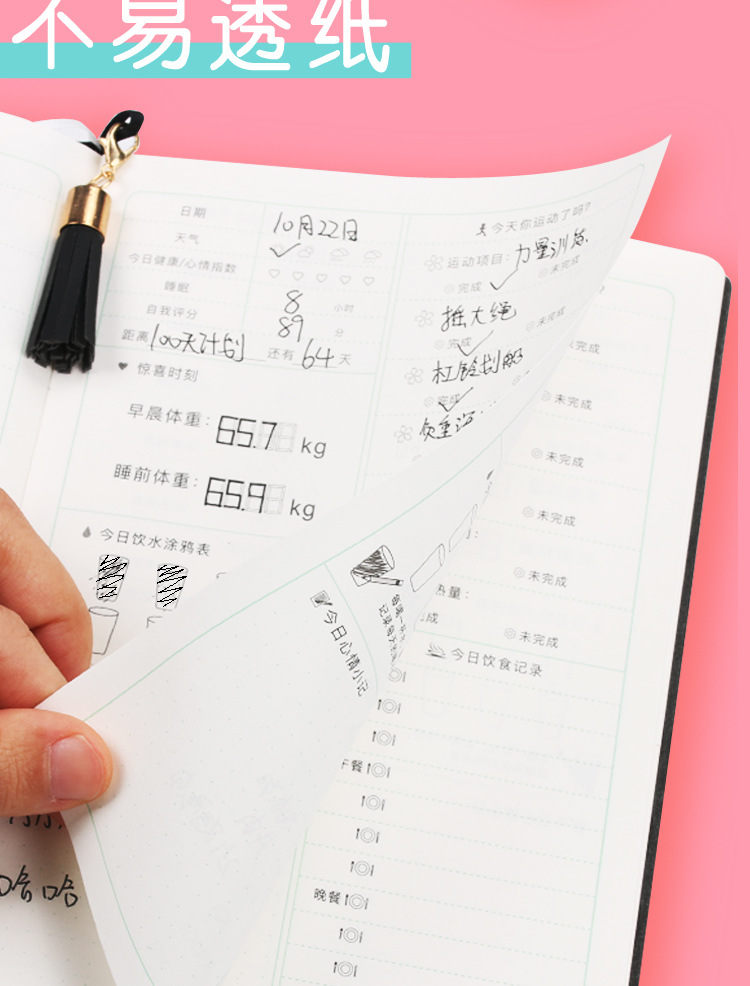 不易透纸
日期 10月22日
天气
今日健康/心情指数
睡眠 8 小时
自我评分 89 分
距离 100天计划 还有 64 天
惊喜时刻
早晨体重: 65.7 kg
睡前体重: 65.9 kg
今日饮水涂鸦表
今天你运动了吗?
运动项目: 力量训练
完成 未完成
摇大绳
完成 未完成
杠铃划船
完成
负重
未完成
未完成
未完成
未完成
未完成
热量:
未完成
今日心情小记
今日饮食记录
午餐
晚餐
哈哈